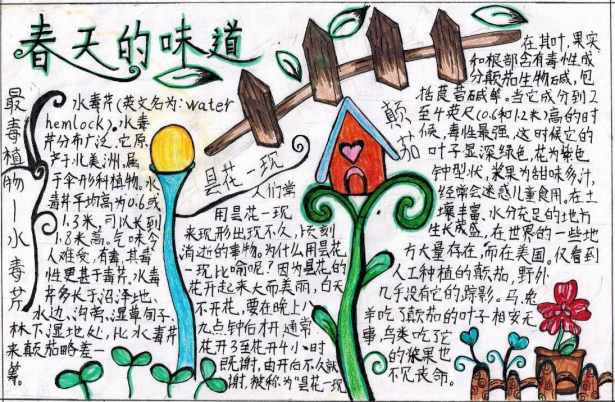 春天的味道
最毒植物—水毒芹
水毒芹(英文名为:water
hemlock)。水毒
芹分布广泛,它原
产于北美洲,属
于伞形科植物。水
毒芹平均高为0.6或
1.3米,可以长到
1.8米高。气味令
人难受,有毒,其毒
性更甚于毒芹。水毒
芹多长于沼泽地、
水边、沟旁、湿草甸子、
林下湿地处,比水毒芹
来颠茄略差一
筹。
昙花一现
人们常
用昙花一现
来现形出现不久,
消逝的事物。为什么用昙花
一现比喻呢?因为昙花的
花开起来大而美丽,白天
不开花,要在晚上八
九点钟白才开,通常
花开3至花开4小时
既谢,由开后不久就
谢,被称为“昙花一现
颠茄
在其叶,果实
和根部含有毒性成
分颠茄生物碱,包
括莨菪碱等。当它成分到2
至4英尺(0.6和1.2米)高的时
候,毒性最强,这时候它的
叶子显深绿色,花为紫色
钟型状,浆果为甜味多汁,
经常会迷惑儿童食用。在土
壤丰富、水分充足的地方
生长成盛,在世界的一些地
方大量存在,而在美国,仅看到
人工种植的颠茄,野外
几乎没有它的踪影。马,兔
羊吃了颠茄的叶子相安无
事,鸟类吃了它
的浆果也
不见丧命。